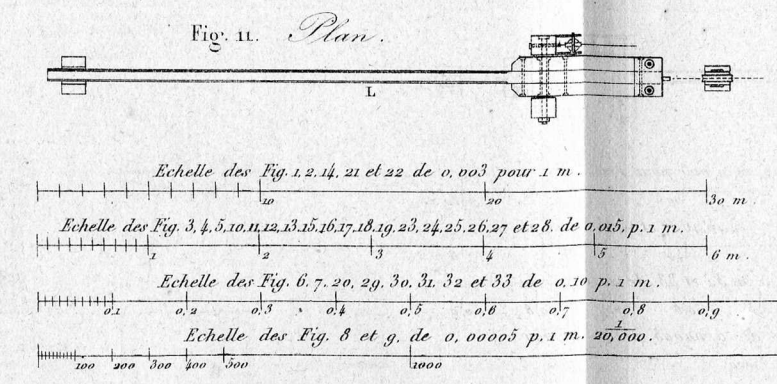 Fig. 11. Plan.
L
Echelle des Fig. 1, 2, 14, 21 et 22 de 0,003 pour 1 m.
10 20 30 m.
Echelle des Fig. 3, 4, 5, 10, 11, 12, 13, 15, 16, 17, 18, 19, 23, 24, 25, 26, 27 et 28. de 0,015, p. 1 m.
1 2 3 4 5 6 m.
Echelle des Fig. 6. 7. 20, 29, 30, 31, 32 et 33 de 0,10 p. 1 m.
0,1 0,2 0,3 0,4 0,5 0,6 0,7 0,8 0,9
Echelle des Fig. 8 et 9. de 0,00005 p. 1 m. 1/20,000.
100 200 300 400 500 1000